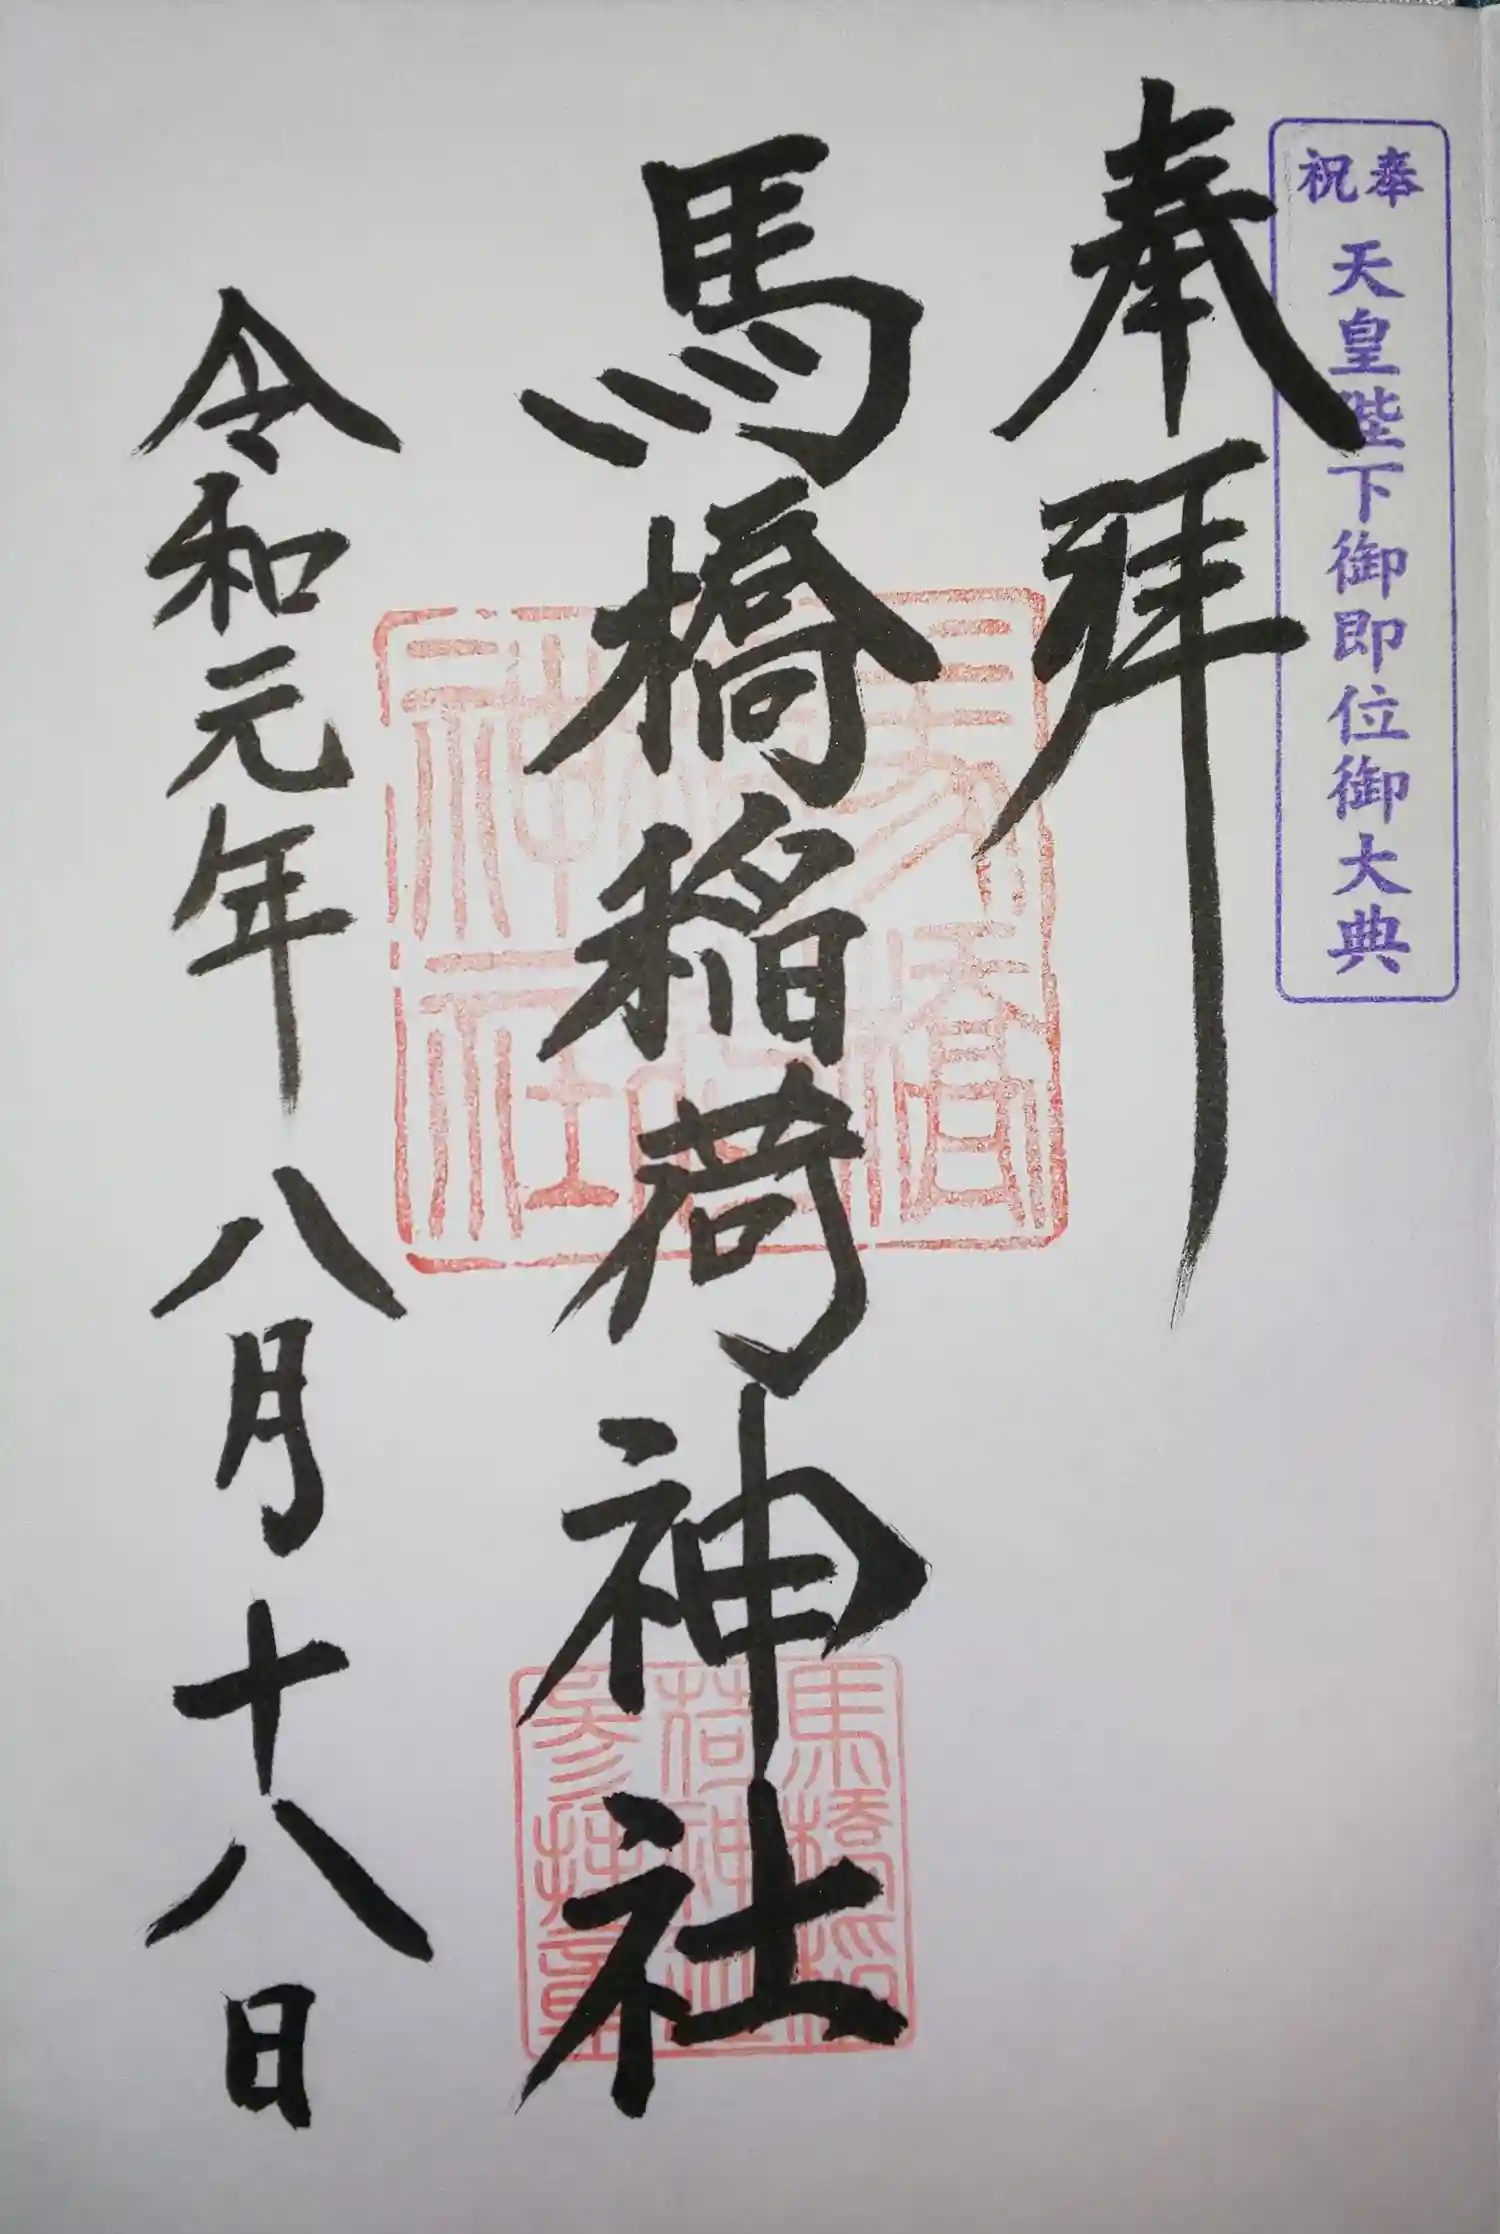 奉祝
天皇陛下御即位御大典
奉拝
馬橋稲荷神社
令和元年八月十八日
馬橋稲荷神社
馬橋稲荷神社参拝章